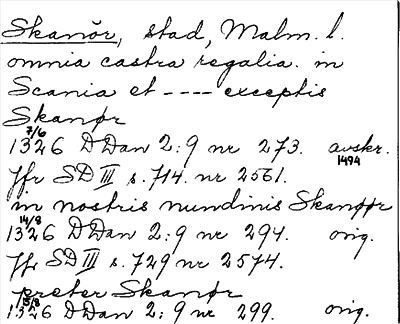 Skanör, stad, Malm. l.
omnia castra regalia in
Scania et ---- exceptis
Skanør
7/6
1326 DDan 2:9 nr 273. avskr.
1494
Jfr SD III s. 714. nr 2561.
in nostris nundinis Skanøør
14/8
1326 DDan 2:9 nr 294. orig.
Jfr SD III s. 729 nr 2574.
preter Skanør
15/8
1326 DDan 2:9 nr 299. orig.